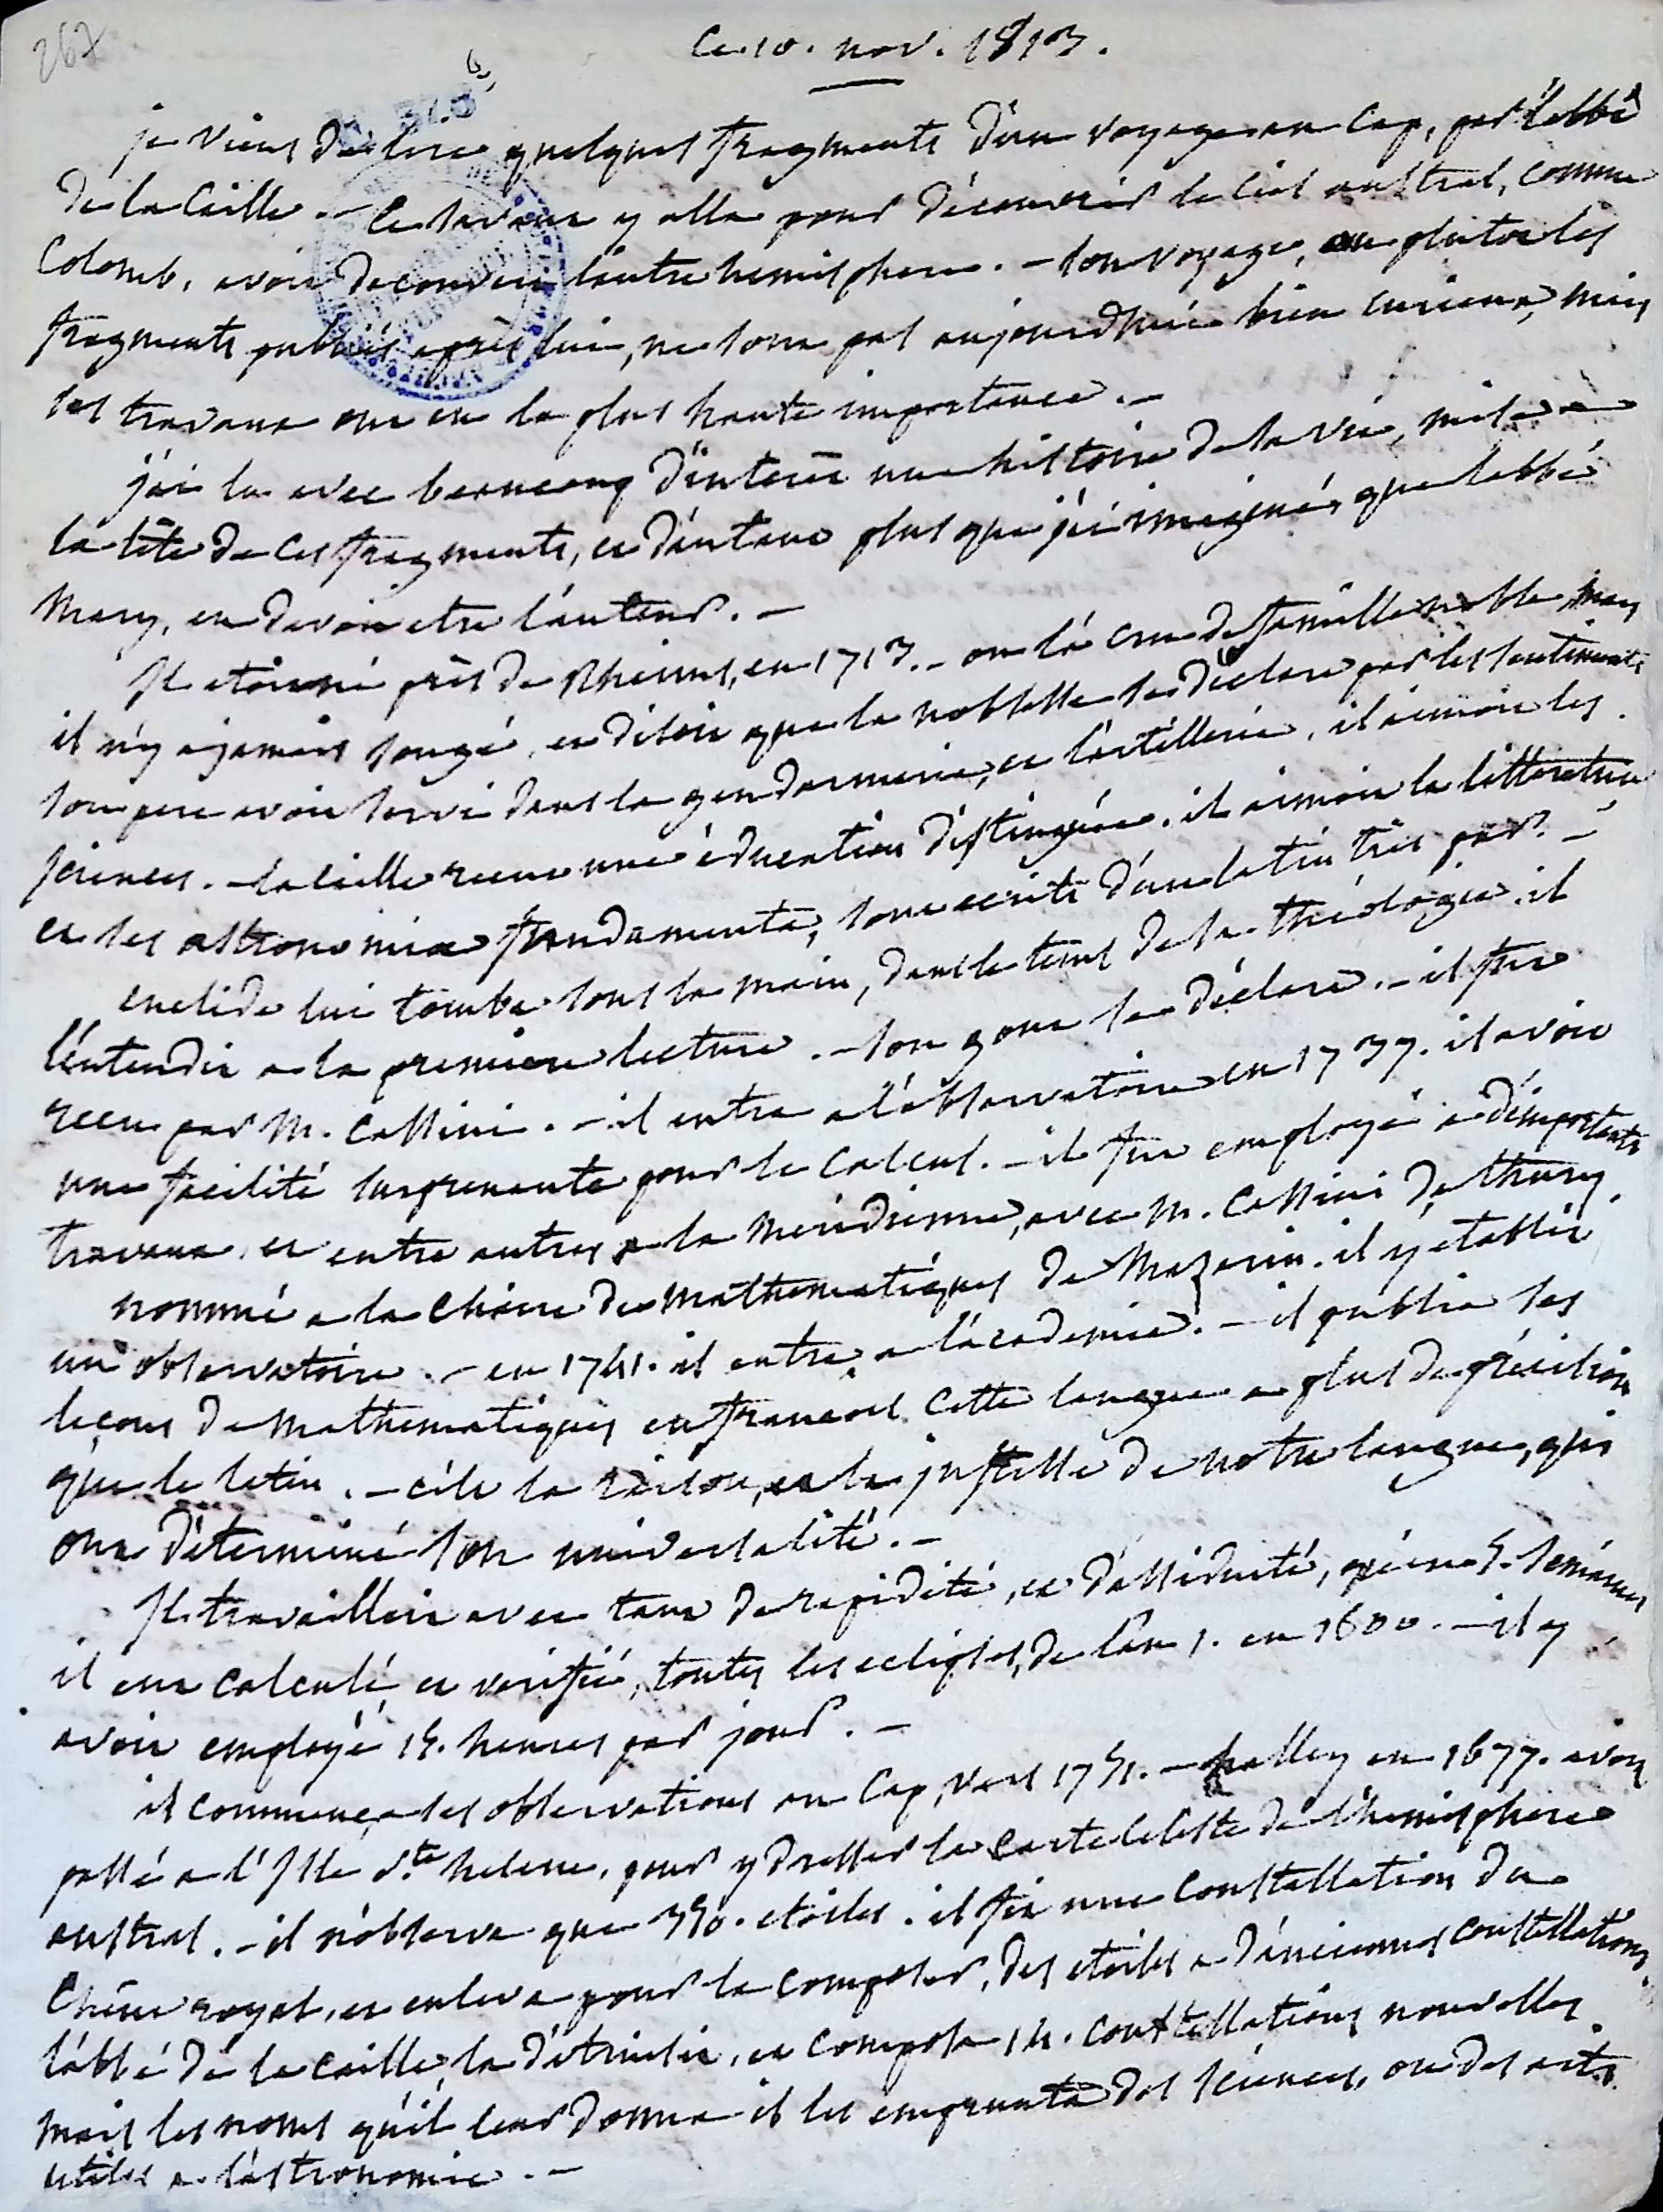 267
Ce 10. nov. 1813.
je viens de lire quelques fragments d'un voyage au Cap, par l'abbé
de la Caille. – Ce savant y alla pour découvrir le ciel austral, comme
Colomb, avoit decouvert l'autre hemisphere. – son voyage, ou plutot les
fragments publiés après lui, ne sont pas aujourdhui bien curieux, mais
ses travaux ont eu la plus haute importance. –
j'ai lu avec beaucoup d'interet une histoire de sa vie, mise a
la tête de ces fragments, et d'autant plus que j'ai imaginé, que l'abbé
Mary, en devoit etre l'auteur. –
Il etoit né près de Rheims, en 1713. – on l'a cru de famille noble, mais
il n'y a jamais songé, et disoit que la noblesse se déclare par les sentiments
son pere avoit servi dans la gendarmerie, et l'artillerie, il aimoit les
sciences. – la Caille recut une éducation distinguée. il aimoit la littérature
et ses astronomiae fundamenta, sont ecrits d'un latin très pur. –
euclide lui tomba sous la main, dans le tems de sa théologie. il
l'entendit a la premiere lecture. – son gout se déclara. – il fut
recu par M. Cassini. – il entra a l'observatoire en 1737. il avoit
une facilité surprenante pour le calcul. – il fut employé a d'importants
travaux, et entre autres a la Méridienne, avec M. Cassini de Thury.
nommé a la chaire de mathematiques de Mazarin. il y etablit
un observatoire. – en 1741. il entra a l'académie. – il publia ses
leçons de mathematiques en francois. Cette langue a plus de précision
que le latin. – c'est la raison, et la justesse de notre langue, qui
ont déterminé son universalité. –
Il travailloit avec tant de rapidité, et d'assiduité, qu'en 5. semaines
il eut calculé, et verifié, toutes les eclipses, de l'an 1. en 1600. – il y
avoit employé 15. heures par jour. –
il commença ses observations au Cap, vers 1751. – halley en 1677. avoit
passé a l'Isle Ste. helene, pour y dresser la carte celeste de l'hemisphere
austral. – il n'observa que 350. etoiles. il fit une constellation du
Chêne royal, et enleva pour la composer, des etoiles a d'anciennes constellations.
l'abbé de la caille, la détruisit, et composa 14. constellations nouvelles
mais les noms qu'il leur donna il les emprunta des sciences, ou des arts
utiles a l'astronomie. –